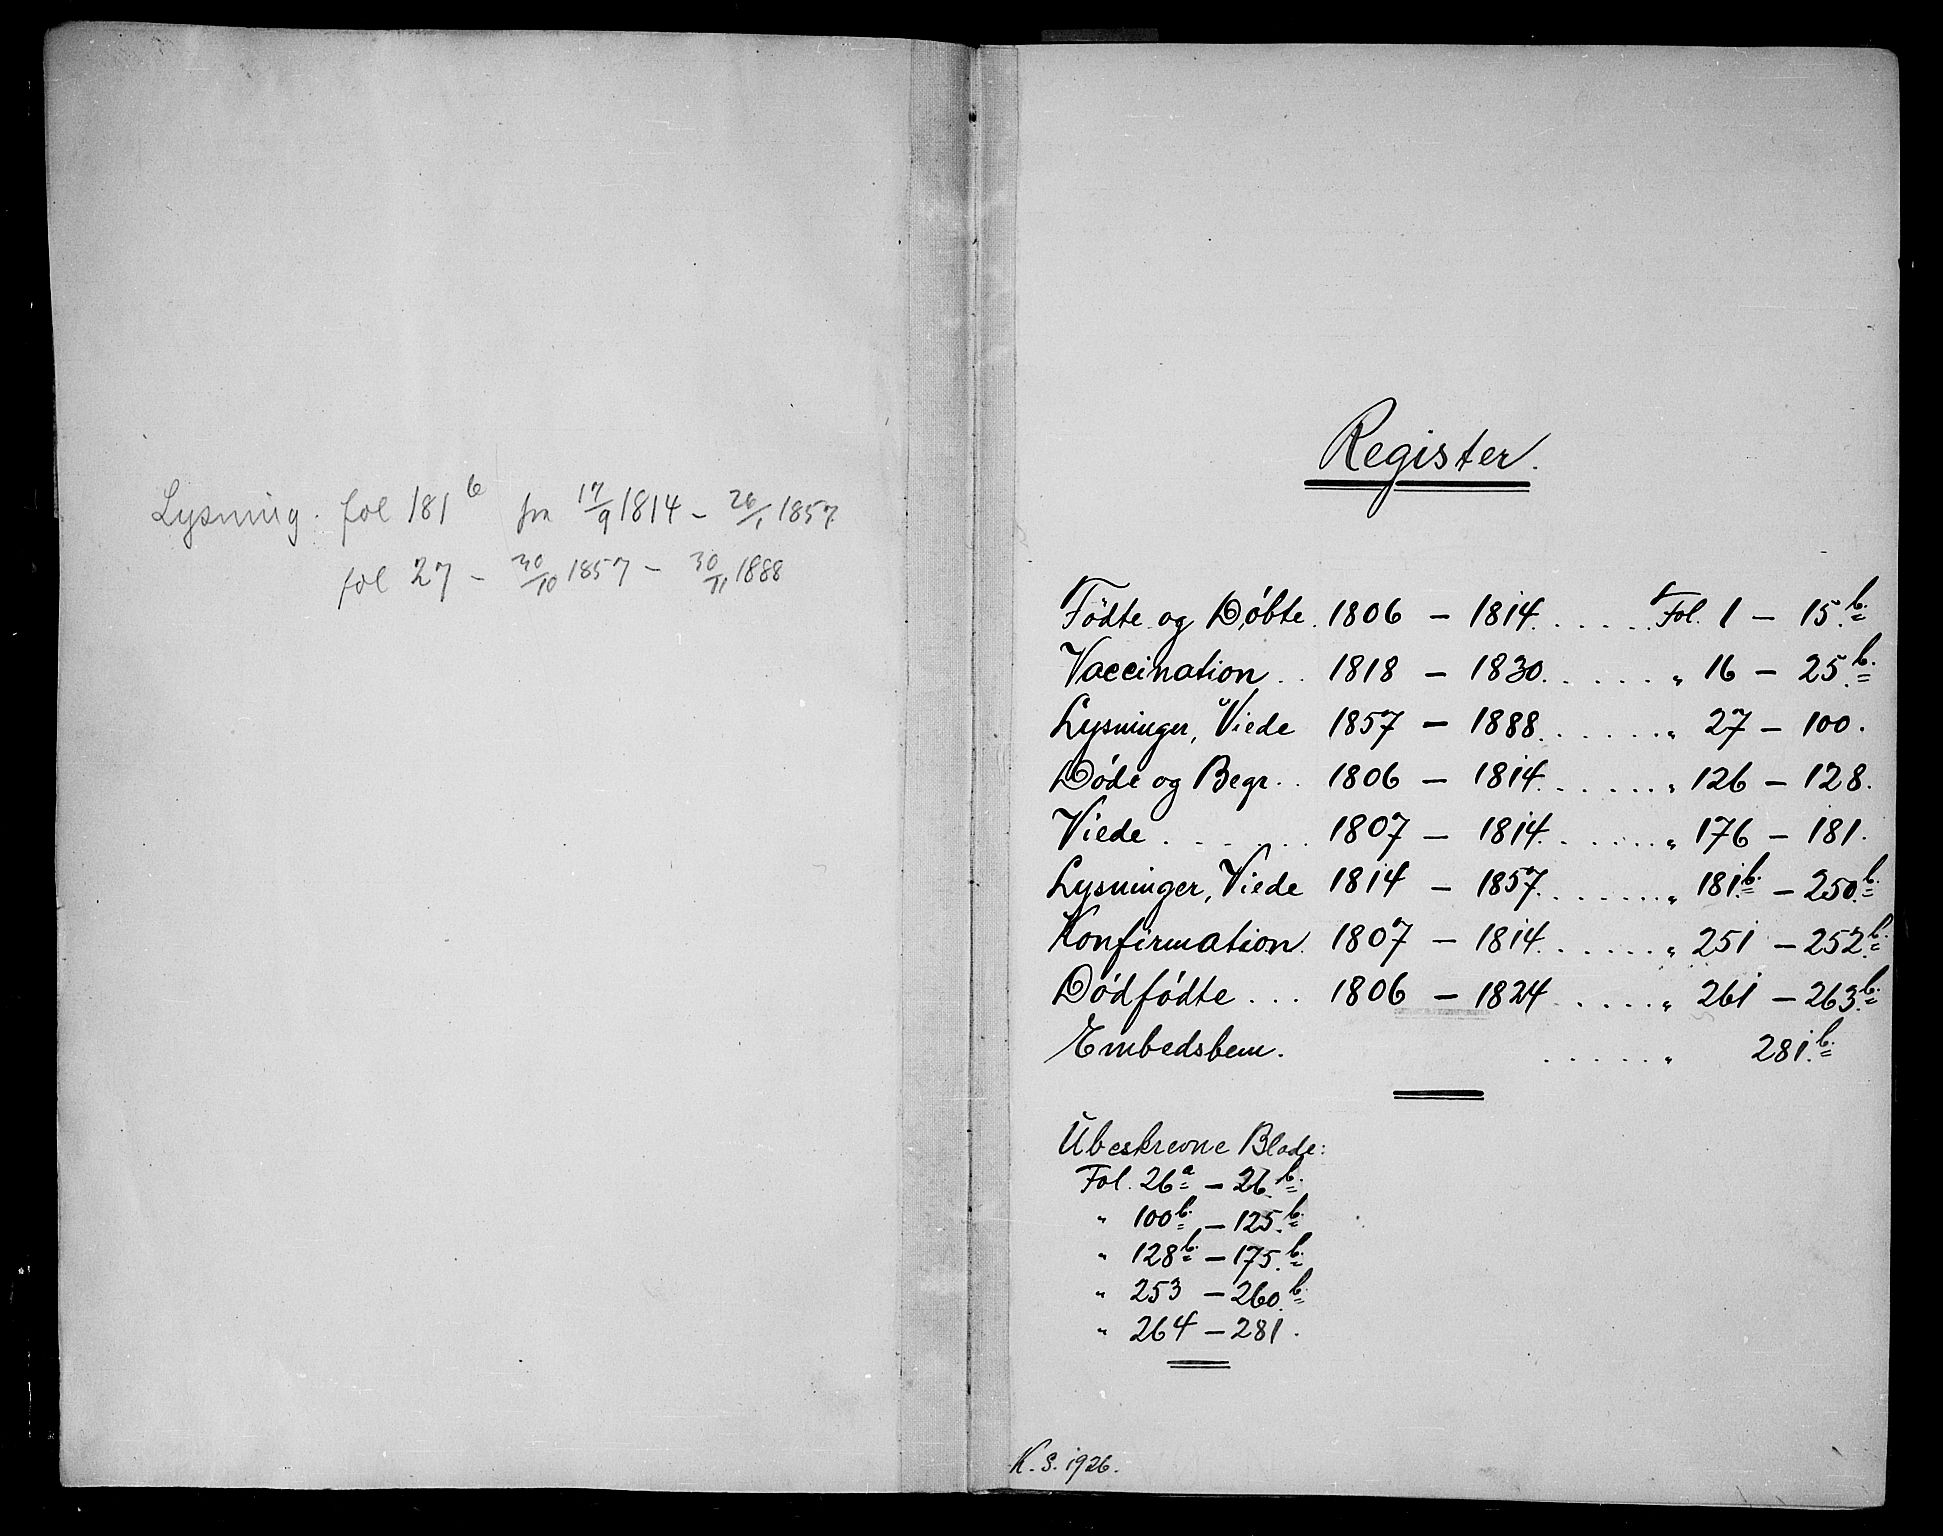 Lysning. fol 181b fra 17/9 1814 - 26/1 1857
fol 27 - 30/10 1857 - 30/11 1888
Register.
Födte og Døbte. 1806 - 1814. . . . . . Fol. 1 - 15.b.
Vaccination . . 1818 - 1830. . . . . . " 16 - 25.b.
Lysninger, Viede 1857 - 1888. . . . . . " 27 - 100.
Døde og Begr. . 1806 - 1814. . . . . . " 126 - 128.
Viede . . . . . . 1807 - 1814. . . . . . " 176 - 181.
Lysninger, Viede 1814 - 1857. . . . . . " 181.b. - 250.b.
Konfirmation. 1807 - 1814. . . . . . " 251 - 252.b.
Dødfødte . . . 1806 - 1824 . . . . . " 261 - 263.b.
Embedsbem. . . . . . " 281.b.
Ubeskrevne Blade:
Fol. 26a - 26.b.
" 100b. - 125.b.
" 128b. - 175.b.
" 253 - 260.b.
" 264 - 281.
K. S. 1926.